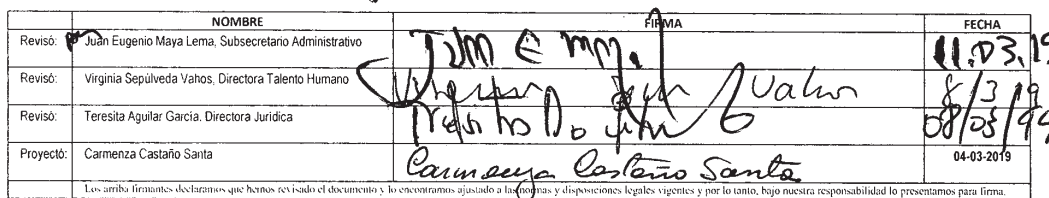 NOMBRE FIRMA FECHA
Revisó: Juan Eugenio Maya Lema, Subsecretario Administrativo Juan E m 11.03.19
Revisó: Virginia Sepúlveda Vahos, Directora Talento Humano Virginia Vahos 8/3/19
Revisó: Teresita Aguilar García. Directora Jurídica 08/03/
Proyectó: Carmenza Castaño Santa Carmenza Castaño Santa 04-03-2019
Los arriba firmantes declaramos que hemos revisado el documento y lo encontramos ajustado a las normas y disposiciones legales vigentes y por lo tanto, bajo nuestra responsabilidad lo presentamos para firma.